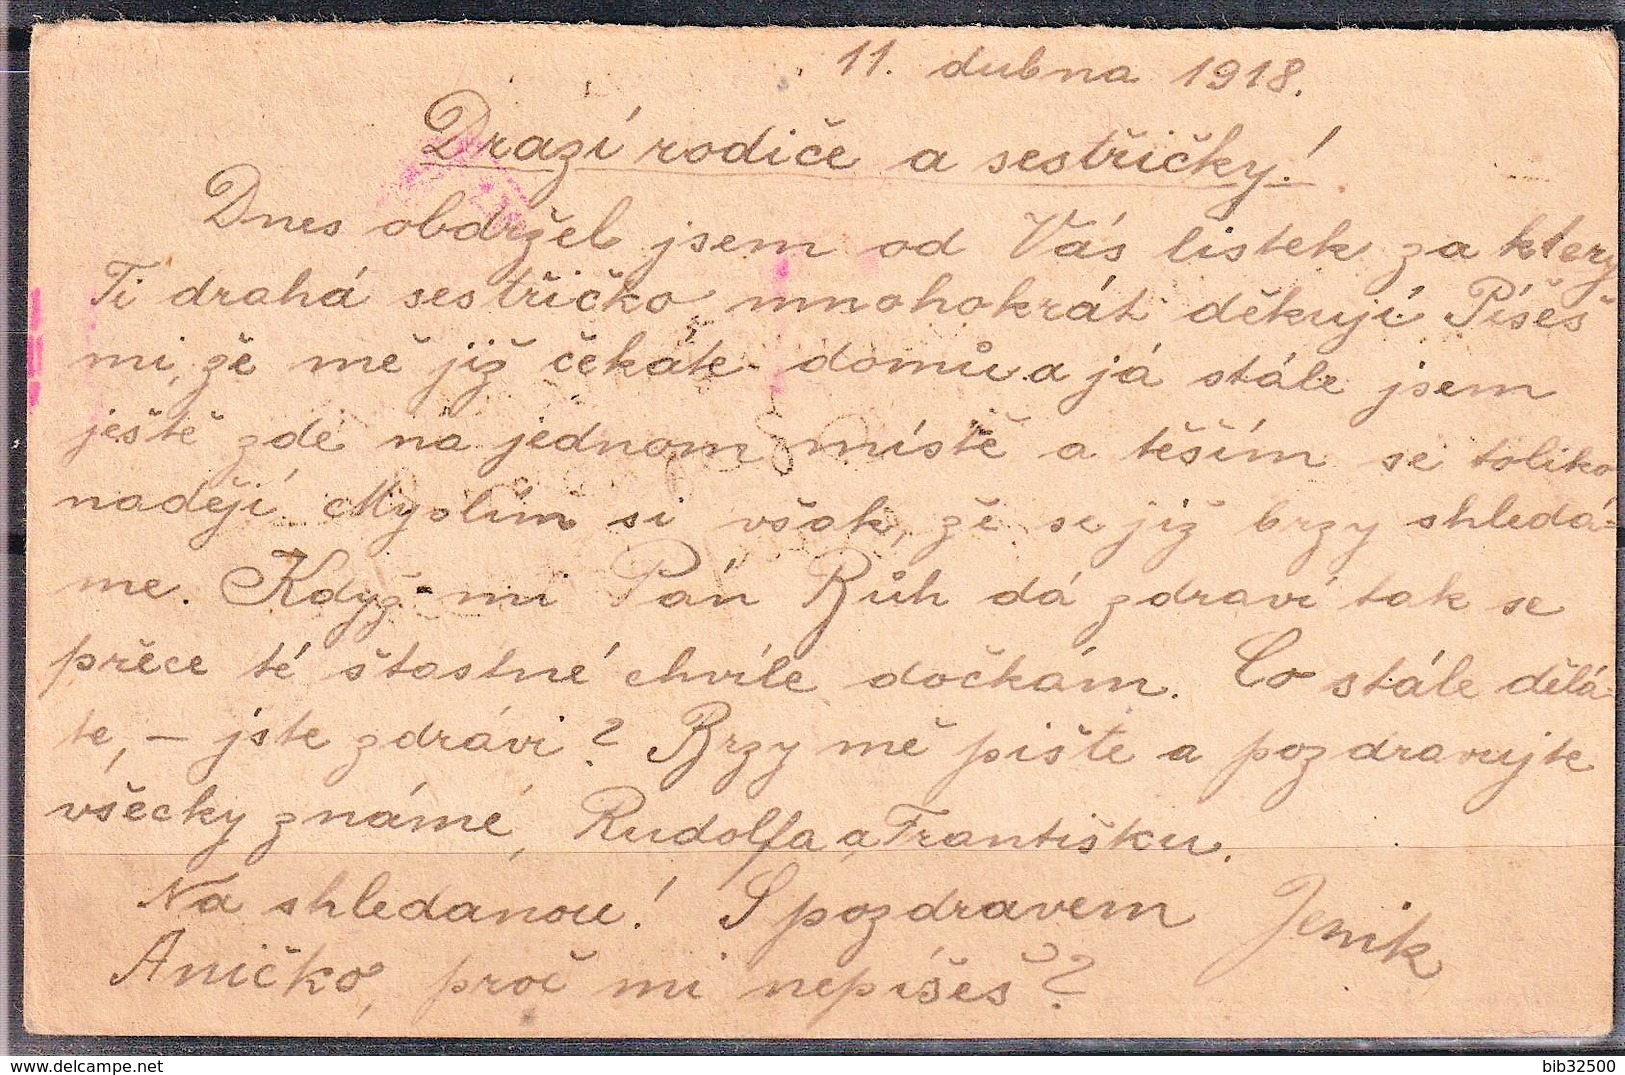 11. dubna 1918.
Drazí rodiče a sestřičky!
Dnes obdržel jsem od Vás lístek za který
Ti drahá sestřičko mnohokrát děkuji. Píšeš
mi, že mě již čekáte domů a já stále jsem
ještě zde na jednom místě a těším se toliko
nadějí. Myslím si však, že se již brzy shledá-
me. Když mi Pán Bůh dá zdraví tak se
přece té šťastné chvíle dočkám. Co stále dělá-
te, – jste zdrávi? Brzy mě pište a pozdravujte
všecky známé, Rudolfa a Františku.
Na shledanou! S pozdravem Jeník
Aničko, proč mi nepíšeš?
www.delcampe.net
bib32500